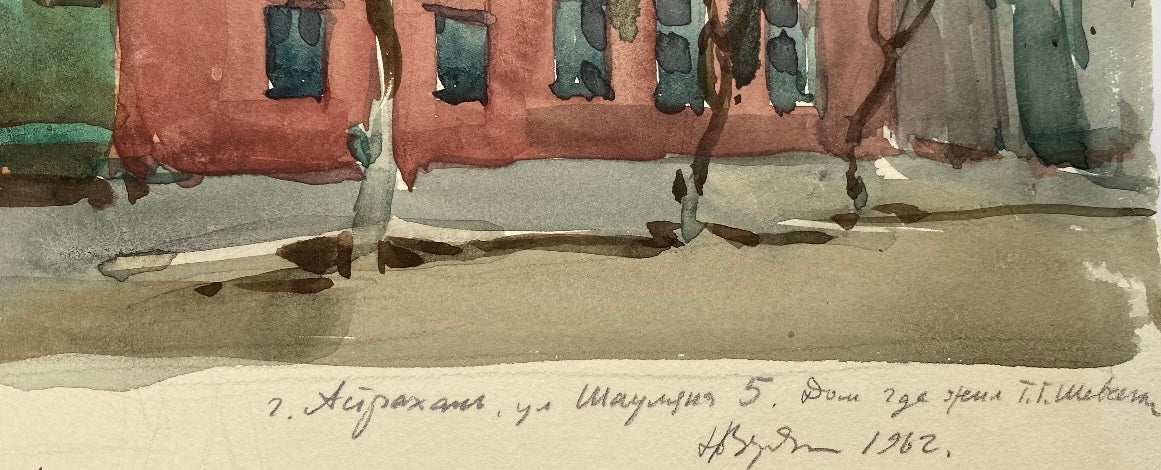 г. Астрахань, ул Шаумяна 5. Дом где жил Т.Г. Шевченк
1962.